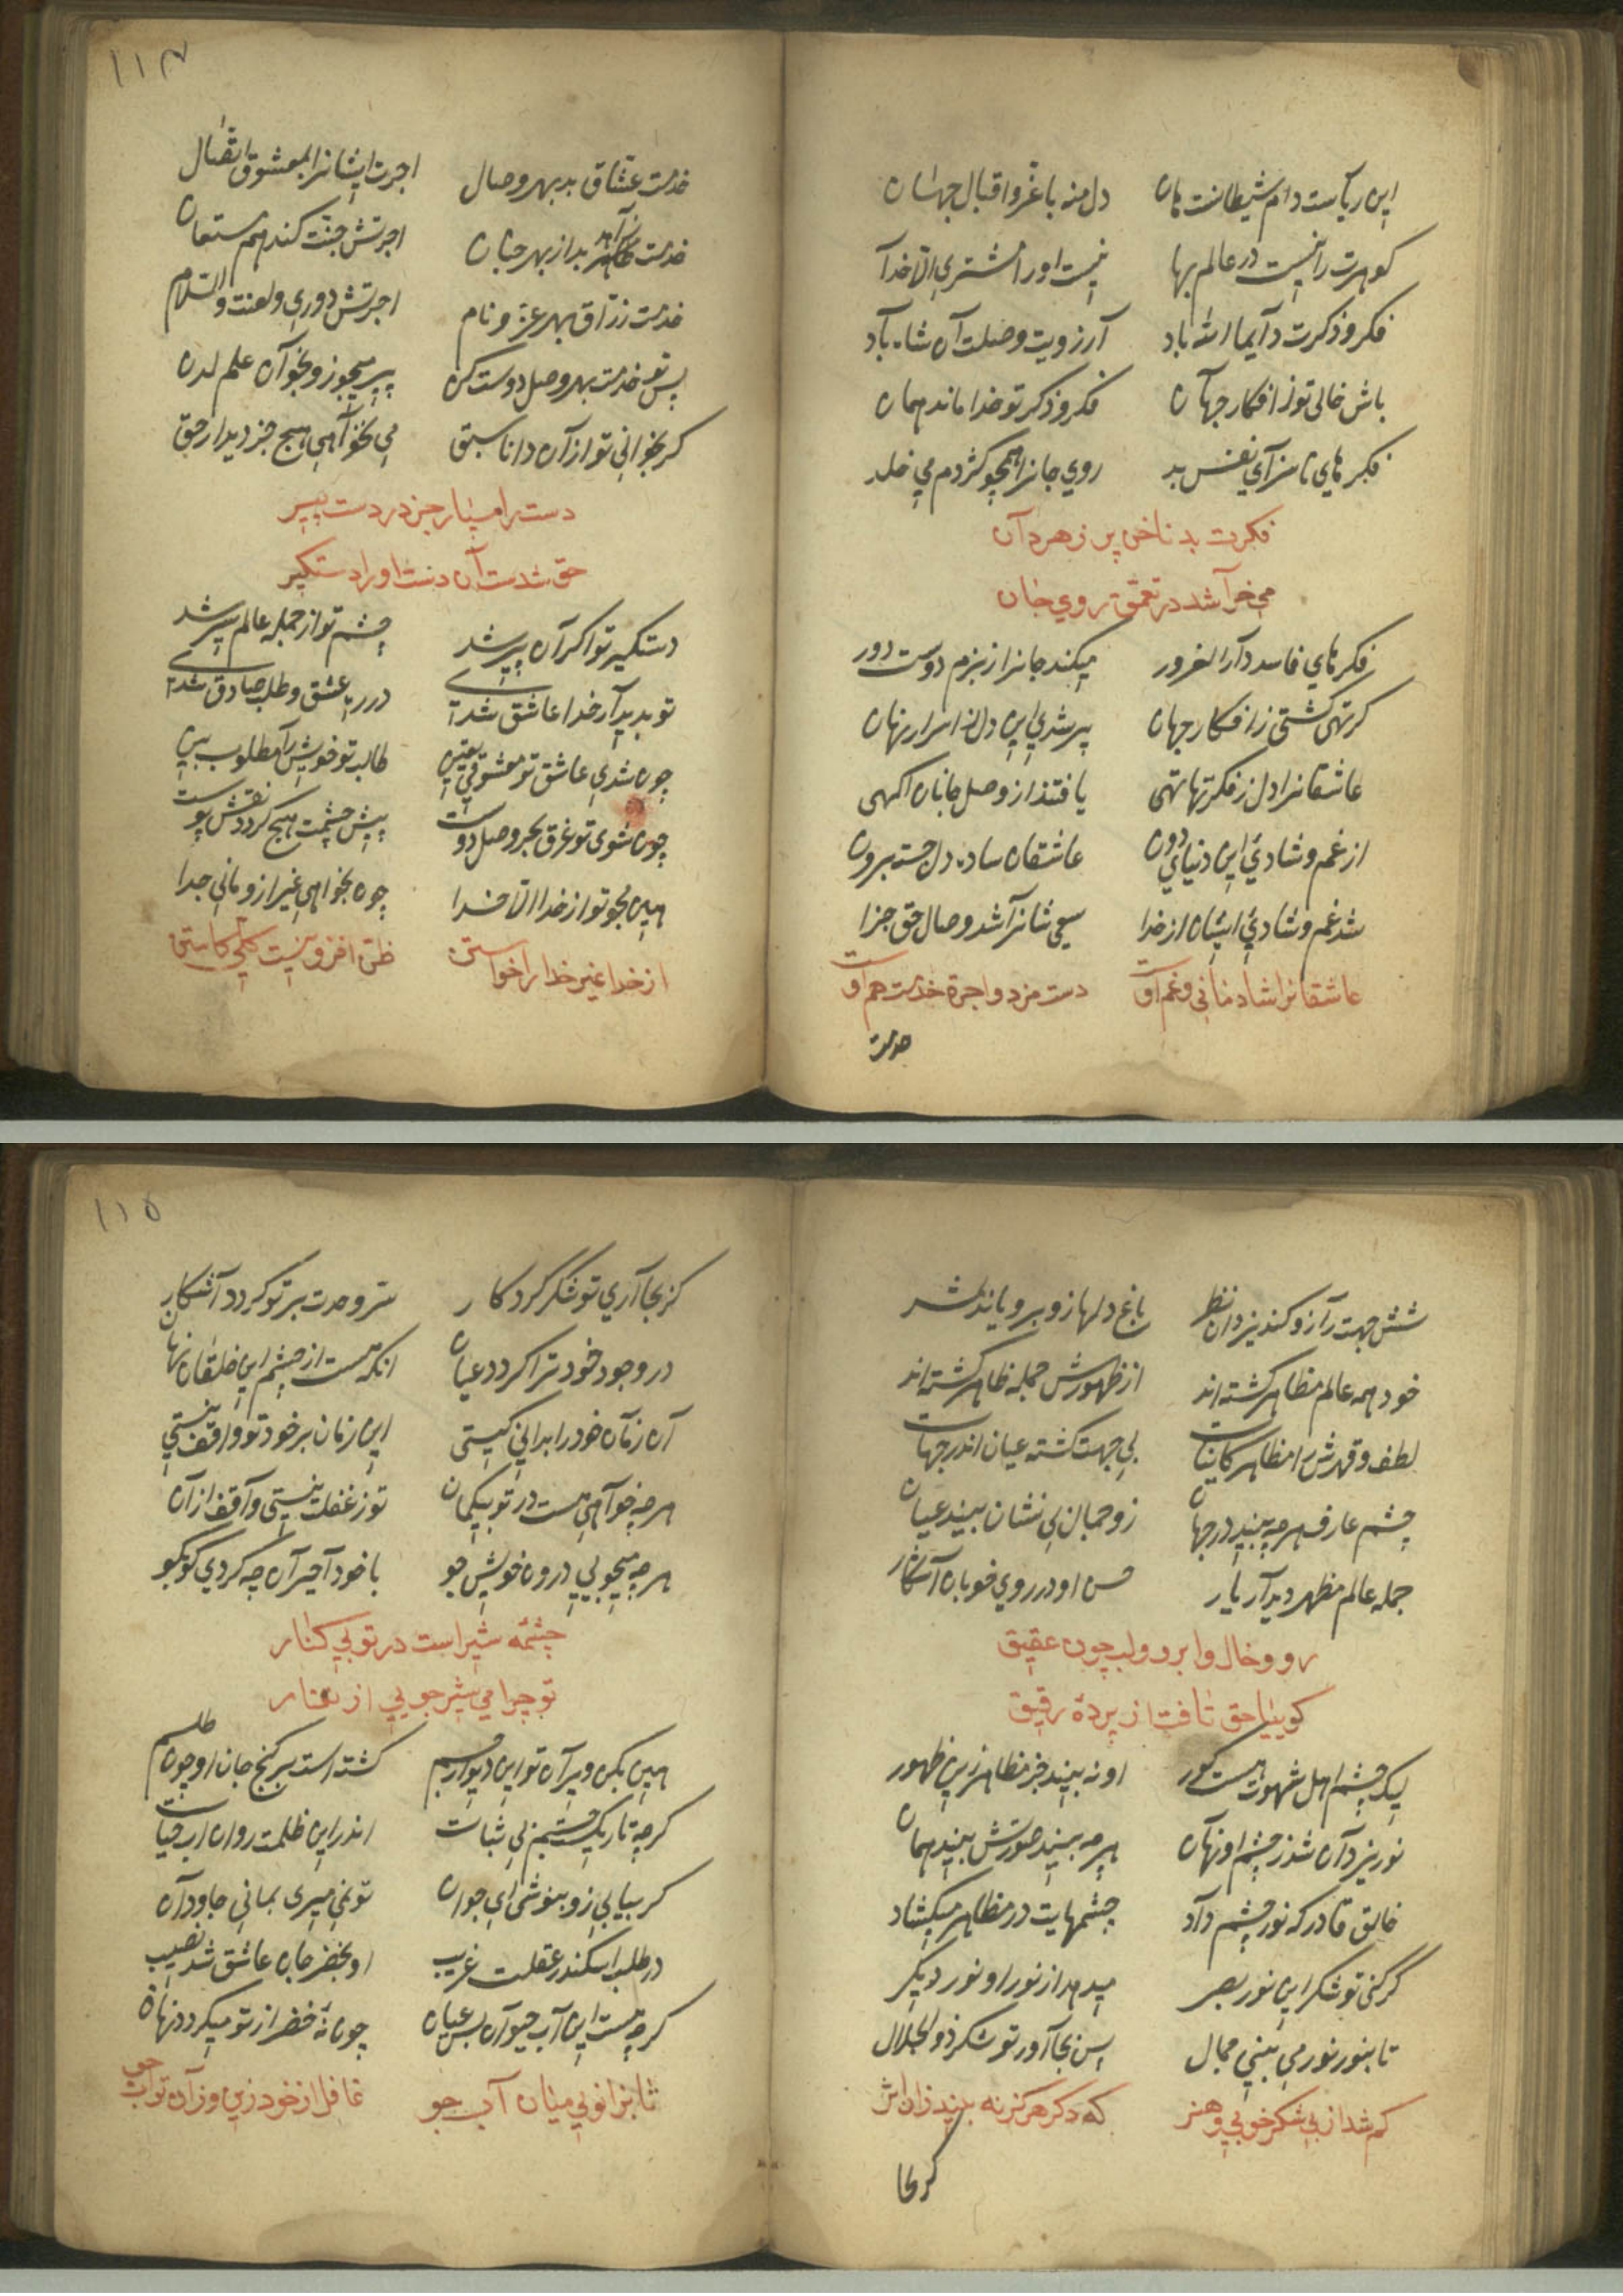 این ریاست دام شیطانست هان دل منه با عز و اقبال جهان
کوهرت را نیست در عالم بها نیست اورا مشتری الا خدا
فکر و ذکرت دایما الله باد آرزویت وصلت آن شاه باد
باش خالی تو ز افکار جهان فکر و ذکر تو خدا ماند همان
فکرهای ناسزای نفس بد روی جانرا همچو کژدم می خلد
فکرت بد ناخن پر زهر دان
می خراشد در تعمق روی جان
فکرهای فاسد دار الغرور میکند جانرا ز بزم دوست دور
کر تهی کشتی ز افکار جهان پر شدی این دل از اسرار نهان
عاشقانرا دل ز فکرتها تهی یافتند از وصل جانان اکهی
از غم و شادی این دنیای دون عاشقان ساده دل جسته برون
شد غم و شادئ ایشان از خدا سعی شانرا شد وصال حق جزا
عاشقانرا شادمانی و غم اوست دست مزد و اجرة خدمت هم اوست
خدمت
١١٤
خدمت عشاق بد بهر وصال اجرت ایشانرا بمعشوق اتصال
خدمت زاهد بد از بهر جنان اجرتش جنت کند هم مستعان
خدمت زراق بهر عز و نام اجرتش دوری و لعنت والسلام
پس تو خدمت بهر وصل دوست کن پیر میجو زو بخوان علم لدن
کر بخوانی تو از آن دانا سبق می نخواهی هیچ جز دیدار حق
دست را مسپار جز در دست پیر
حق شدست آن دست اورا دستکیر
دستکیر تو اکر آن پیر شد چشم تو از جمله عالم سیر شد
تو بدیدار خدا عاشق شدی در ره عشق و طلب صادق شدی
چون شدی عاشق تو معشوقی یقین طالب تو خویش را مطلوب بین
چون شوی تو غرق بحر وصل دوست پیش چشمت هیچ کردد نقش پوست
هین مجو تو از خدا الا خدا چون بخواهی غیر ازو مانی جدا
از خدا غیر خدارا خواستن ظن افزونیست کلی کاستن
شش جهت را زو کند یزدان نظر باغ دلها زو برویاند شر
خود همه عالم مظاهر کشته اند از ظهورش جمله ظاهر کشته اند
لطف و قهرش را مظاهر کاینات بی جهت کشته عیان اندر جهات
چشم عارف هرچه بیند در جهان زو جمال بی نشان بیند عیان
جمله عالم مظهر دیدار یار حسن او در روی خوبان آشکار
رو و خال و ابرو و لب چون عقیق
کوییا حق تافت از پردۀ رقیق
لیک چشم اهل شهوت هست کور او نه بیند جز مظاهر زین ظهور
نور یزدان شد ز چشم او نهان هرچه بیند صورتش بیند همان
خالق قادر که نور چشم داد چشمهایت در مظاهر میکشاد
کر کنی تو شکر این نور بصر میدهد از نور او نور دیکر
تا بنور نور می بینی جمال پس بجا آور تو شکر ذو الجلال
کم شد از بی شکر خوبی و هنر که دکر هرکز نه بیند زان اثر
کر بجا
١١٥
کر بجا آری تو شکر کردکار سر وحدت بر تو کردد آشکار
در وجود خود ترا کردد عیان انکه هست از چشم این خلقان نهان
آن زمان خود را بدانی کیستی این زمان بر خود تو واقف نیستی
هر چه خواهی هست در تو بیکمان تو ز غفلت نیستی واقف از آن
هرچه میجویی درون خویش جو با خود آ حیران چه کردی کو بکو
چشمه شیر است در تو بی کنار
تو چرا می شیر جویی از تغار
هین بکن ویران تو این دیوار جسم کشته است بر کنج جان او چون طلسم
کرچه تاریکست جسم بی ثبات اندر این ظلمت روان اب حیات
کر بیابی زو بنوشی ای جوان تو نمی میری بمانی جاودان
در طلب اسکندر عقلت غریب او بخضر جان عاشق شد نصیب
کرچه هست این آب حیوان بس عیان چون نۀ خضر از تو میکردد نهان
تا بزانویی میان آب جو غافل از خود زین و زان تو آب جو